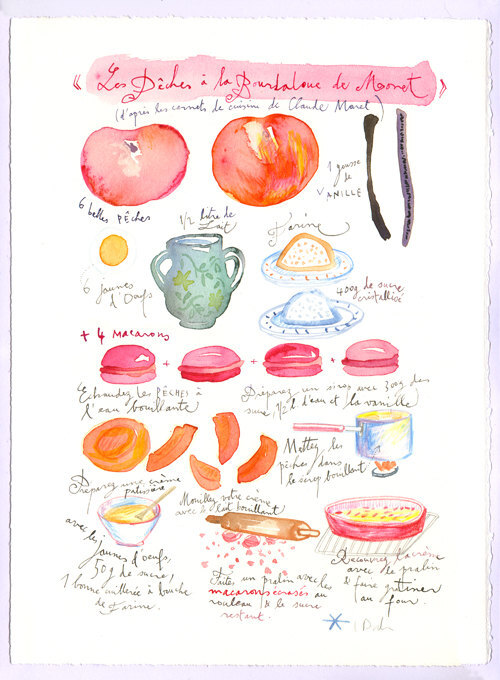 « Les Pêches à la Bourdaloue de Monet »
(d'après les carnets de cuisine de Claude Monet)
6 belles PÊCHES
1 gousse
de
VANILLE
1/2 litre de
Lait
Farine
6 jaunes
d'Oeufs
400g de sucre
cristallisé
+ 4 MACARONS
+ + +
Echaudez les PÊCHES à
l'eau bouillante
Préparez un sirop avec 300g de
sucre, 1/2 l d'eau et la vanille
Mettez les
pêches dans
le sirop bouillant
Préparez une crème
patissière
avec les
jaunes d'oeufs,
50g de sucre,
1 bonne cuillerée à bouche
de Farine.
Mouillez votre crème
avec le lait bouillant
Faites un pralin avec les
macarons écrasés au
rouleau & le sucre
restant.
Recouvrez la crème
avec le pralin
& faire gratiner
au four.